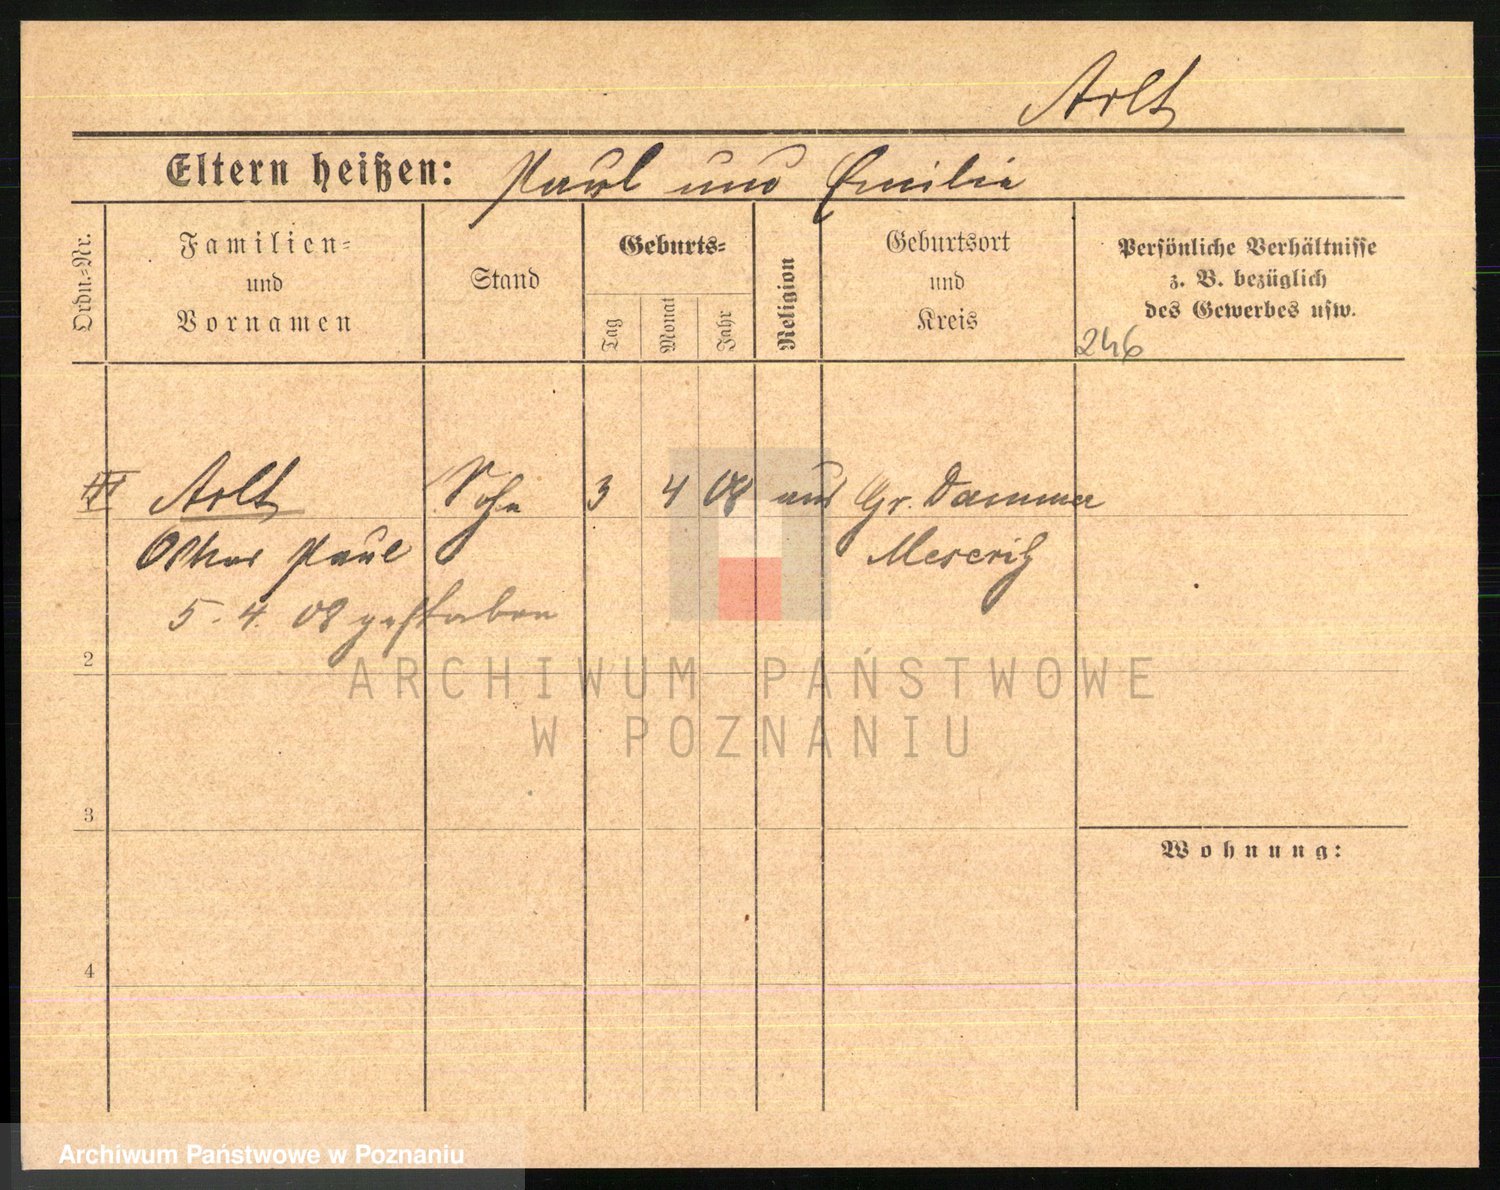 Arlt
Eltern heißen: Paul und Emilie
Ordn.=Nr.
Familien=
und
Vornamen
Stand
Geburts=
Tag
Monat
Jahr
Religion
Geburtsort
und
Kreis
Persönliche Verhältnisse
z. B. bezüglich
des Gewerbes usw.
246
Arlt Sohn 3 4 08 Gr. Dammer
Oskar Paul Meseritz
5. 4. 08 gestorben
2
ARCHIWUM PAŃSTWOWE
W POZNANIU
3
Wohnung:
4
Archiwum Państwowe w Poznaniu